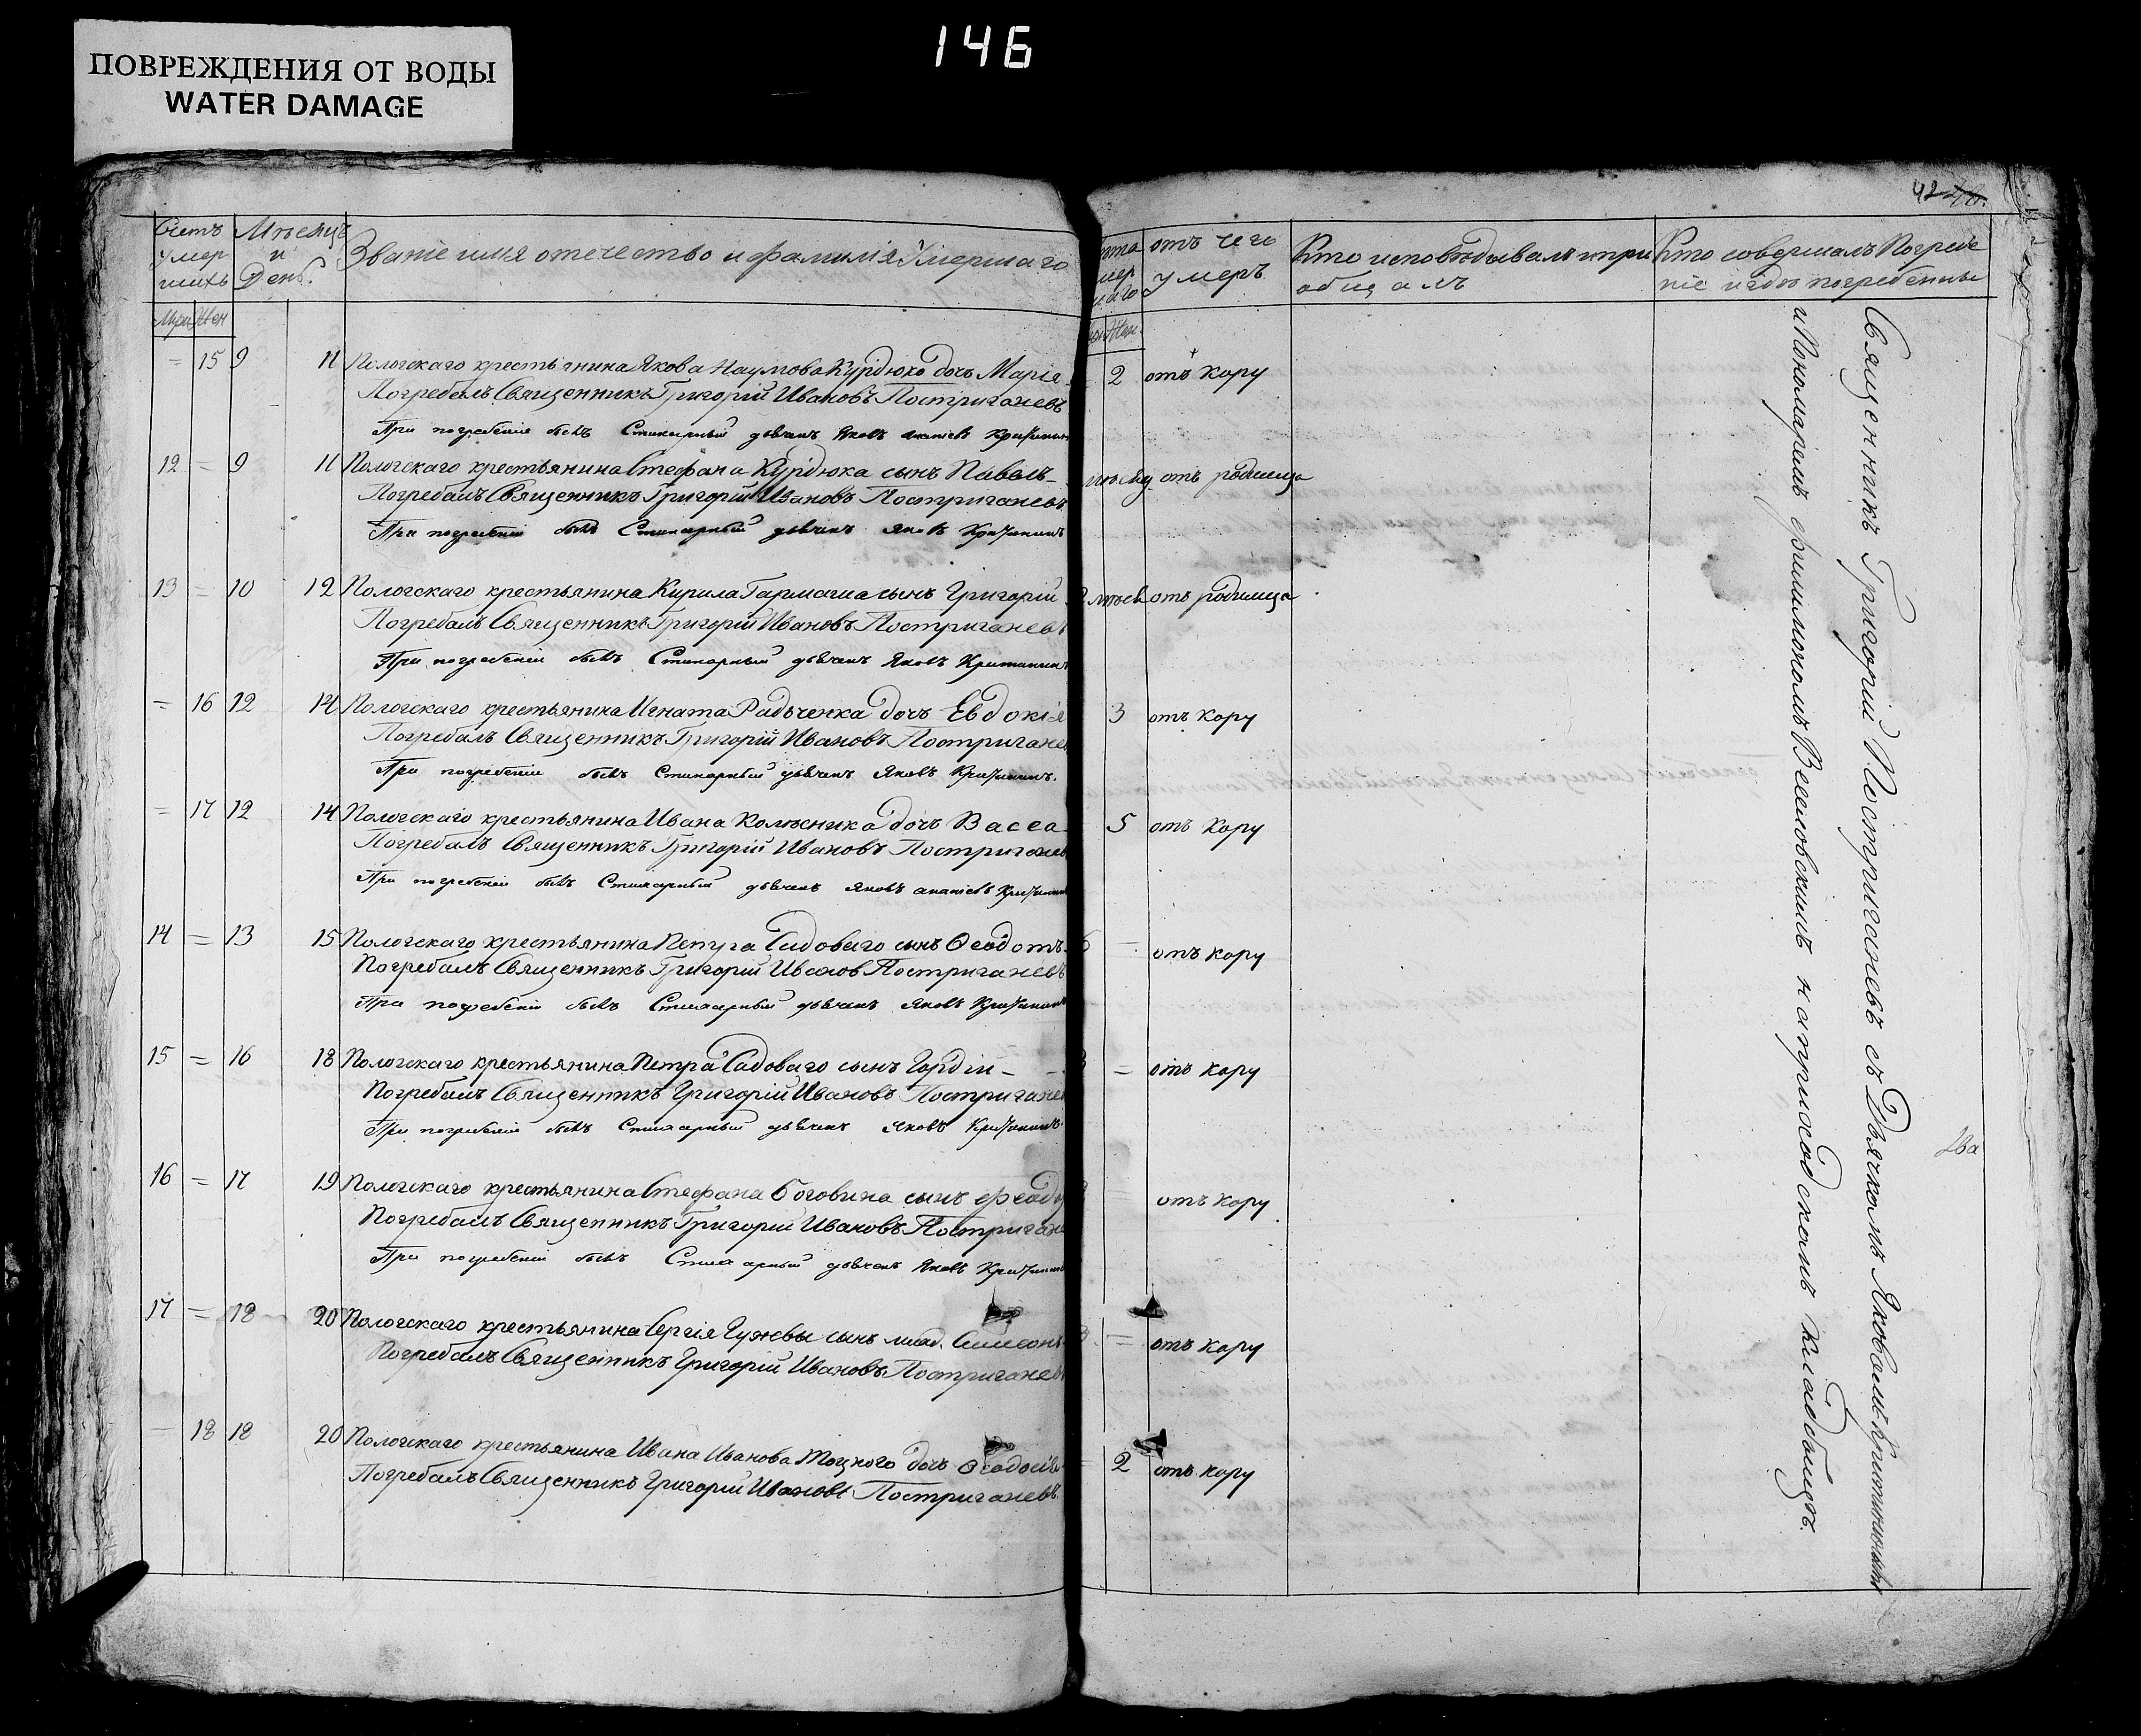 146
ПОВРЕЖДЕНИЯ ОТ ВОДЫ
WATER DAMAGE
42
Счетъ умершихъ
Мѣсяцъ и День.
Званіе имя отечество и фамилія Умершаго
Лѣта умершаго
отъ чего умеръ
Кто исповѣдывалъ и пріобщалъ
Кто совершалъ Погребеніе и гдѣ погребенны
Муж Жен
= 15 9 11 Пологскаго крестьянина Якова Наумова Курдюко дочь Марія 2 отъ кору
Погребалъ Священникъ Григорій Ивановъ Постриганевъ
При погребеніи былъ Стихарный дьячекъ Яковъ Ананіевъ
12 = 9 11 Пологскаго крестьянина Стефана Курдюка сынъ Павелъ отъ родимца
Погребалъ Священникъ Григорій Ивановъ Постриганевъ
При погребеніи былъ Стихарный дьячекъ Яковъ
13 = 10 12 Пологскаго крестьянина Кирила Гармаша сынъ Григорій отъ родимца
Погребалъ Священникъ Григорій Ивановъ Постриганевъ
При погребеніи былъ Стихарный дьячекъ Яковъ
= 16 12 14 Пологскаго крестьянина Игната Радьченка дочь Евдокія 3 отъ кору
Погребалъ Священникъ Григорій Ивановъ Постриганев
При погребеніи былъ Стихарный дьячекъ Яковъ
= 17 12 14 Пологскаго крестьянина Ивана Колѣсника дочь Васса 5 отъ кору
Погребалъ Священникъ Григорій Ивановъ Постриганев
При погребеніи былъ Стихарный дьячекъ Яковъ Ананіевъ
14 = 13 15 Пологскаго крестьянина Петра Садоваго сынъ Ѳеодотъ 6 = отъ кору
Погребалъ Священникъ Григорій Иванов Постриганевъ
При погребеніи былъ Стихарный дьячекъ Яковъ
15 = 16 18 Пологскаго крестьянина Петра Садоваго сынъ Гордій = отъ кору
Погребалъ Священникъ Григорій Ивановъ Постриганев
При погребеніи былъ Стихарный дьячекъ Яковъ
16 = 17 19 Пологскаго крестьянина Стефана Боговина сынъ отъ кору
Погребалъ Священникъ Григорій Ивановъ Постриган
При погребеніи былъ Стихарный дьячекъ Яковъ
17 = 18 20 Пологскаго крестьянина Сергія Гужевы сынъ млад. Симеонъ = отъ кору
Погребалъ Священникъ Григорій Ивановъ Постриганев
18 18 20 Пологскаго крестьянина Ивана Иванова Тоцкого дочь Ѳеодосія 2 отъ кору
Погребалъ Священникъ Григорій Ивановъ Постриганевъ
Священникъ Григорій Постриганевъ съ Дьячкомъ Яковомъ
и Пономаремъ Филимономъ Веселовскимъ на приходскомъ кладбищѣ.
Два